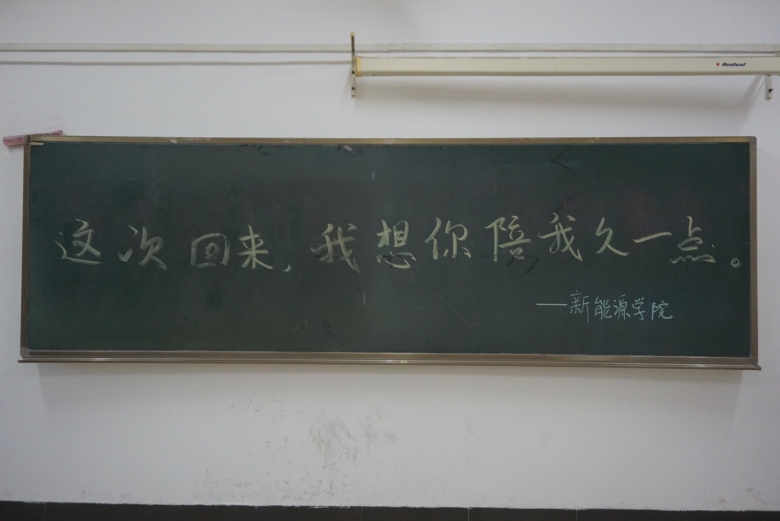 Redleaf
这次回来，我想你陪我久一点。
——新能源学院